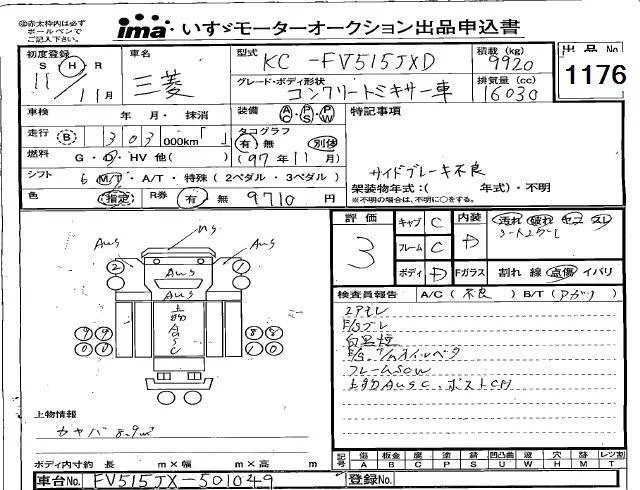 ◎赤太枠内は必ず
ボールペンで
ご記入下さい。
ima いすゞモーターオークション出品申込書
初度登録 車名 型式 KC-FV515JXD 積載 (kg) 9920 出品 No
S H R 11 / 11月 三菱 グレード・ボディ形状 コンクリートミキサー車 排気量 (cc) 16030 1176
車検 年 月・抹消 装備 AC・PS・PW 特記事項
走行 B 303 000km「 」 タコグラフ 有 無 別体
燃料 G・D・HV 他( ) (97年11月)
シフト 6 M/T・A/T・特殊(2ペダル・3ペダル) サイドブレーキ不良
色 指定 R券 有 無 9710円 架装物年式:( 年式)・不明
※不明の場合は、不明に○をする。
評価 キャブ C 内装 D 汚れ 破れ コゲ スレ
3 フレーム C
ボディ D Fガラス 割れ 線 点傷 イバリ
検査員報告 A/C(不良) B/T(アガリ)
エアモレ
白黒煙
フレームSCW
上物AUSC、ポストCH
AUS AUS
2 AUS 1
上物AUSC
9 9 8 8
0 0 1 0
上物情報
カヤバ 8.9㎥
ボディ内寸約 長 m×幅 m×高 m
記号 傷 A 板金 B 腐 C 塗 P 錆 S 凹凸曲 U 波 W 穴 H 跡 M レンズ割 T
車台No. FV515JX-501049 登録No.